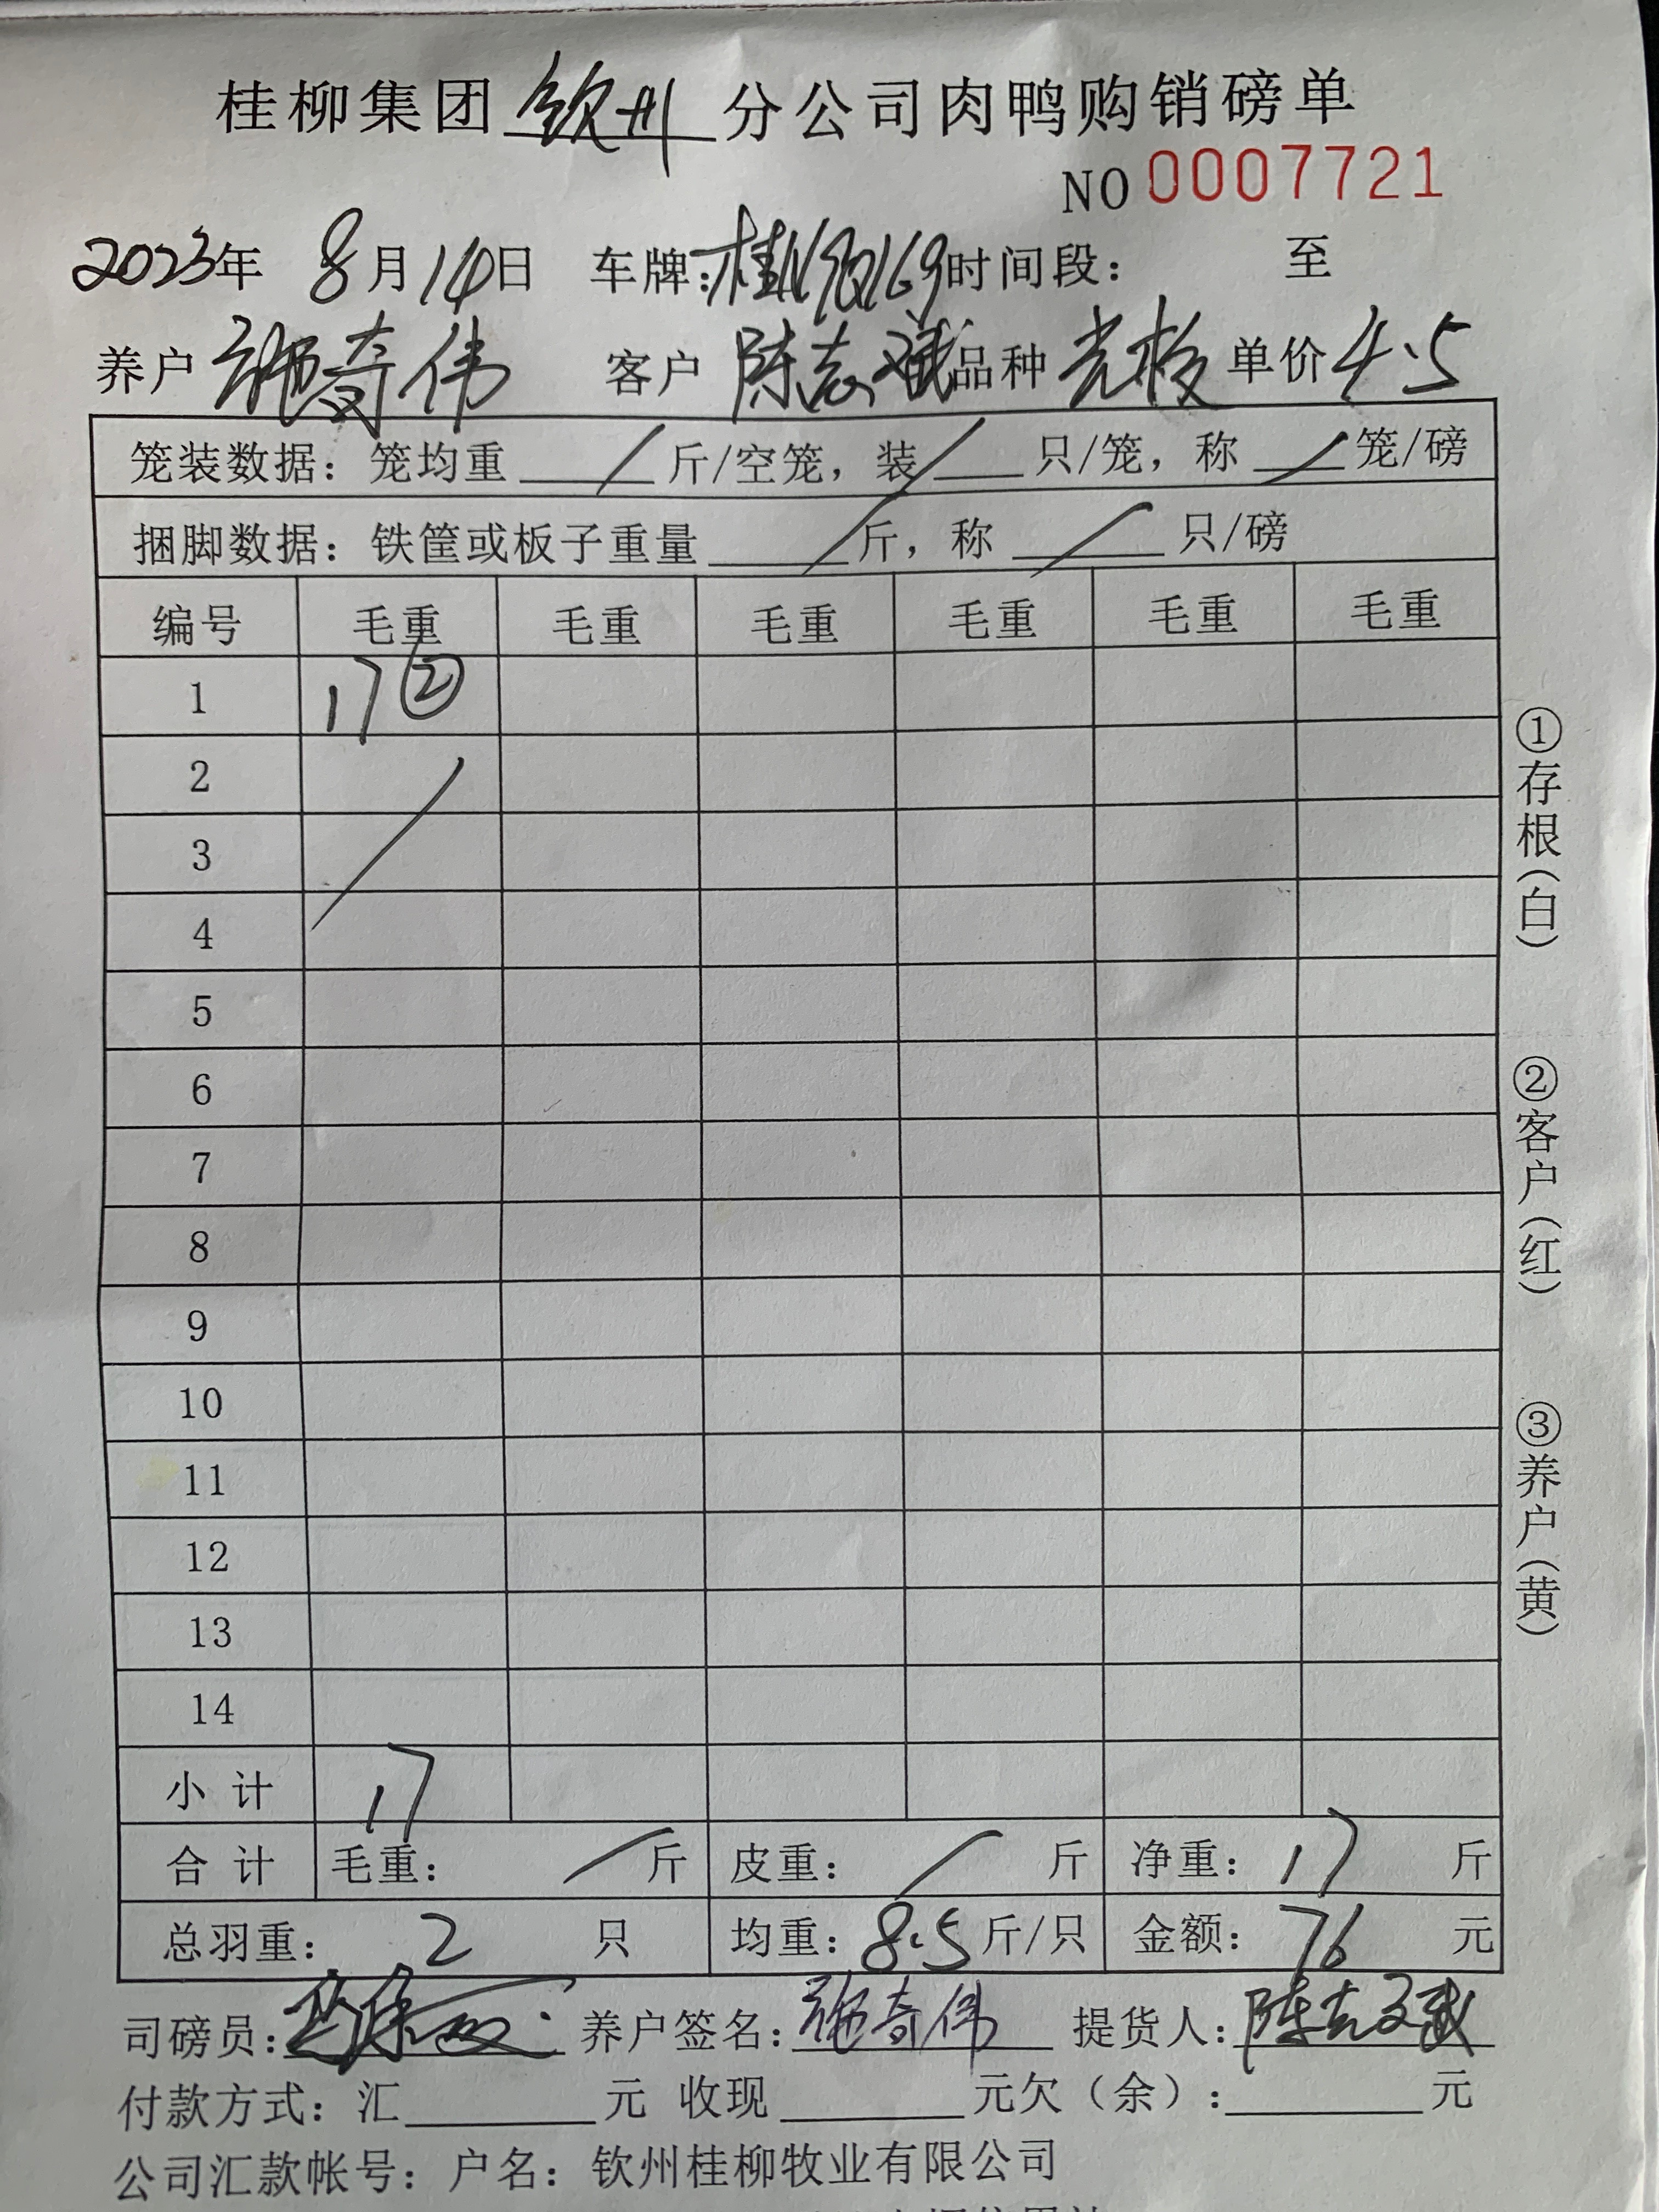 桂柳集团钦州分公司肉鸭购销磅单
NO 0007721
2023年 8月14日 车牌: 时间段: 至
养户 施奇伟 客户 陈志斌 品种 单价 4.5
笼装数据: 笼均重 / 斤/空笼, 装 / 只/笼, 称 / 笼/磅
捆脚数据: 铁筐或板子重量 / 斤, 称 / 只/磅
编号 毛重 毛重 毛重 毛重 毛重 毛重
1 17 ②
2
3
4
5
6
7
8
9
10
11
12
13
14
小计 17
合计 毛重: / 斤 皮重: / 斤 净重: 17 斤
总羽重: 2 只 均重: 8.5 斤/只 金额: 76 元
司磅员: 养户签名: 施奇伟 提货人: 陈志斌
付款方式: 汇 元 收现 元欠(余): 元
公司汇款帐号: 户名: 钦州桂柳牧业有限公司
①存根(白)
②客户(红)
③养户(黄)